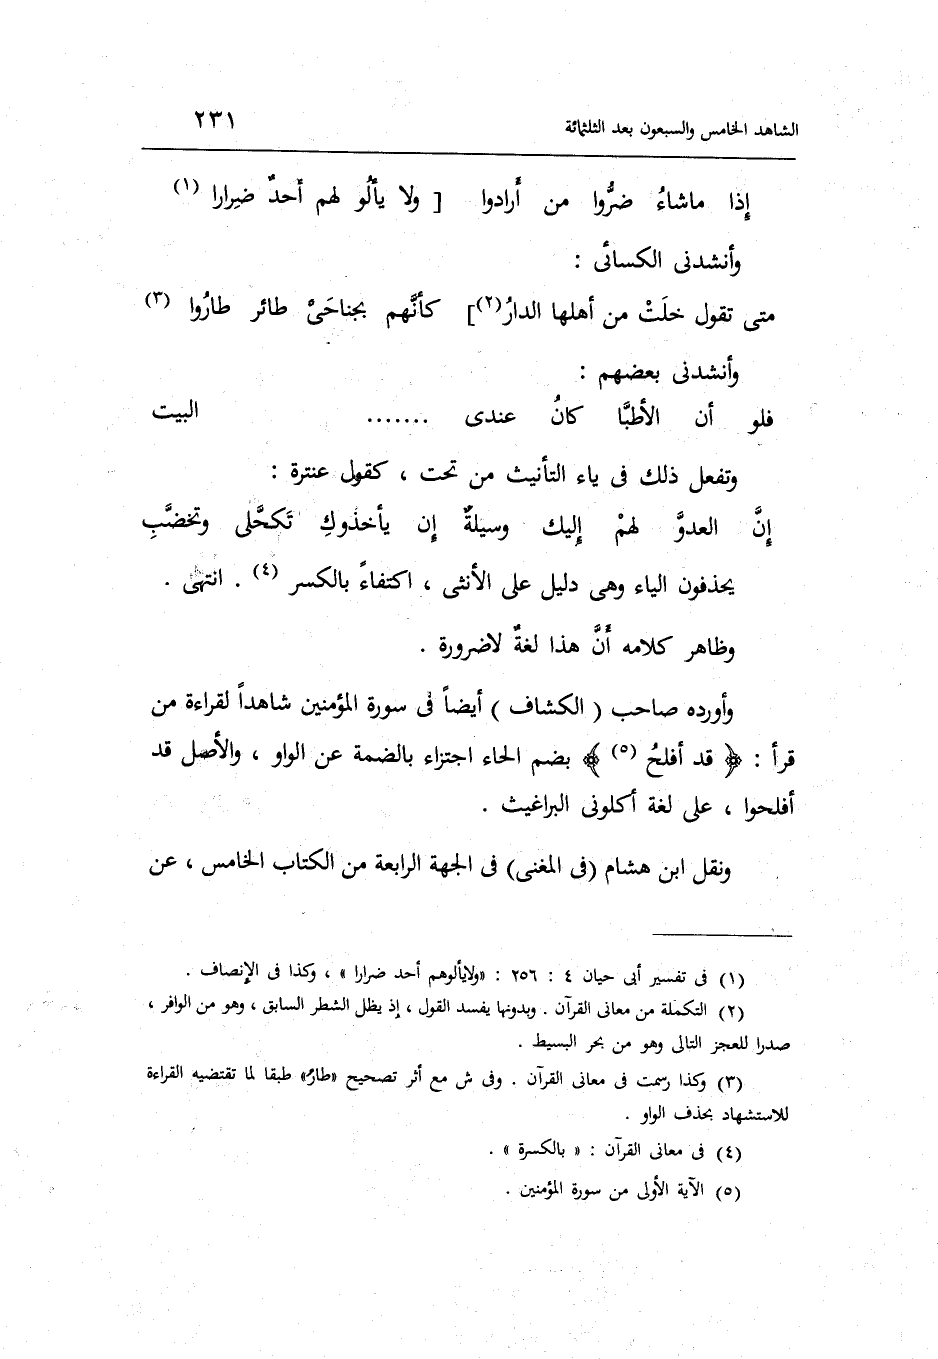 الشاهد الخامس والسبعون بعد الثلثمائة ٢٣١
إذا ماشاءُ ضرُّوا من أَرادوا [ ولا يألُو لهم أحدٌ ضيرارا (١)
وأنشدنى الكسائى :
متى تقول خلَتْ من أهلها الدارُ(٢)] كأنَّهم بجناحَىْ طائر طارُوا (٣)
وأنشدنى بعضهم :
فلو أن الأطبَّا كانُ عندى ....... البيت
وتفعل ذلك فى ياء التأنيث من تحت ، كقول عنترة :
إنَّ العدوَّ لهمْ إليك وسيلةٌ إن يأخذوكِ تَكحَّلى وتخضَّبِ
يحذفون الياء وهى دليل على الأنثى ، اكتفاءً بالكسر (٤) . انتهى .
وظاهر كلامه أَنَّ هذا لغةٌ لاضرورة .
وأورده صاحب ( الكشاف ) أيضاً فى سورة المؤمنين شاهداً لقراءة من
قرأ : ﴿ قد أفلحُ (٥) ﴾ بضم الحاء اجتزاء بالضمة عن الواو ، والأصل قد
أفلحوا ، على لغة أكلونى البراغيث .
ونقل ابن هشام (فى المغنى) فى الجهة الرابعة من الكتاب الخامس ، عن
(١) فى تفسير أبى حيان ٤ : ٢٥٦ : «ولايألوهم أحد ضرارا » ، وكذا فى الإنصاف .
(٢) التكملة من معانى القرآن . وبدونها يفسد القول ، إذ يظل الشطر السابق ، وهو من الوافر ،
صدرا للعجز التالى وهو من بحر البسيط .
(٣) وكذا رسمت فى معانى القرآن . وفى ش مع أثر تصحيح «طارُ» طبقا لما تقتضيه القراءة
للاستشهاد بحذف الواو .
(٤) فى معانى القرآن : « بالكسرة » .
(٥) الآية الأولى من سورة المؤمنين .